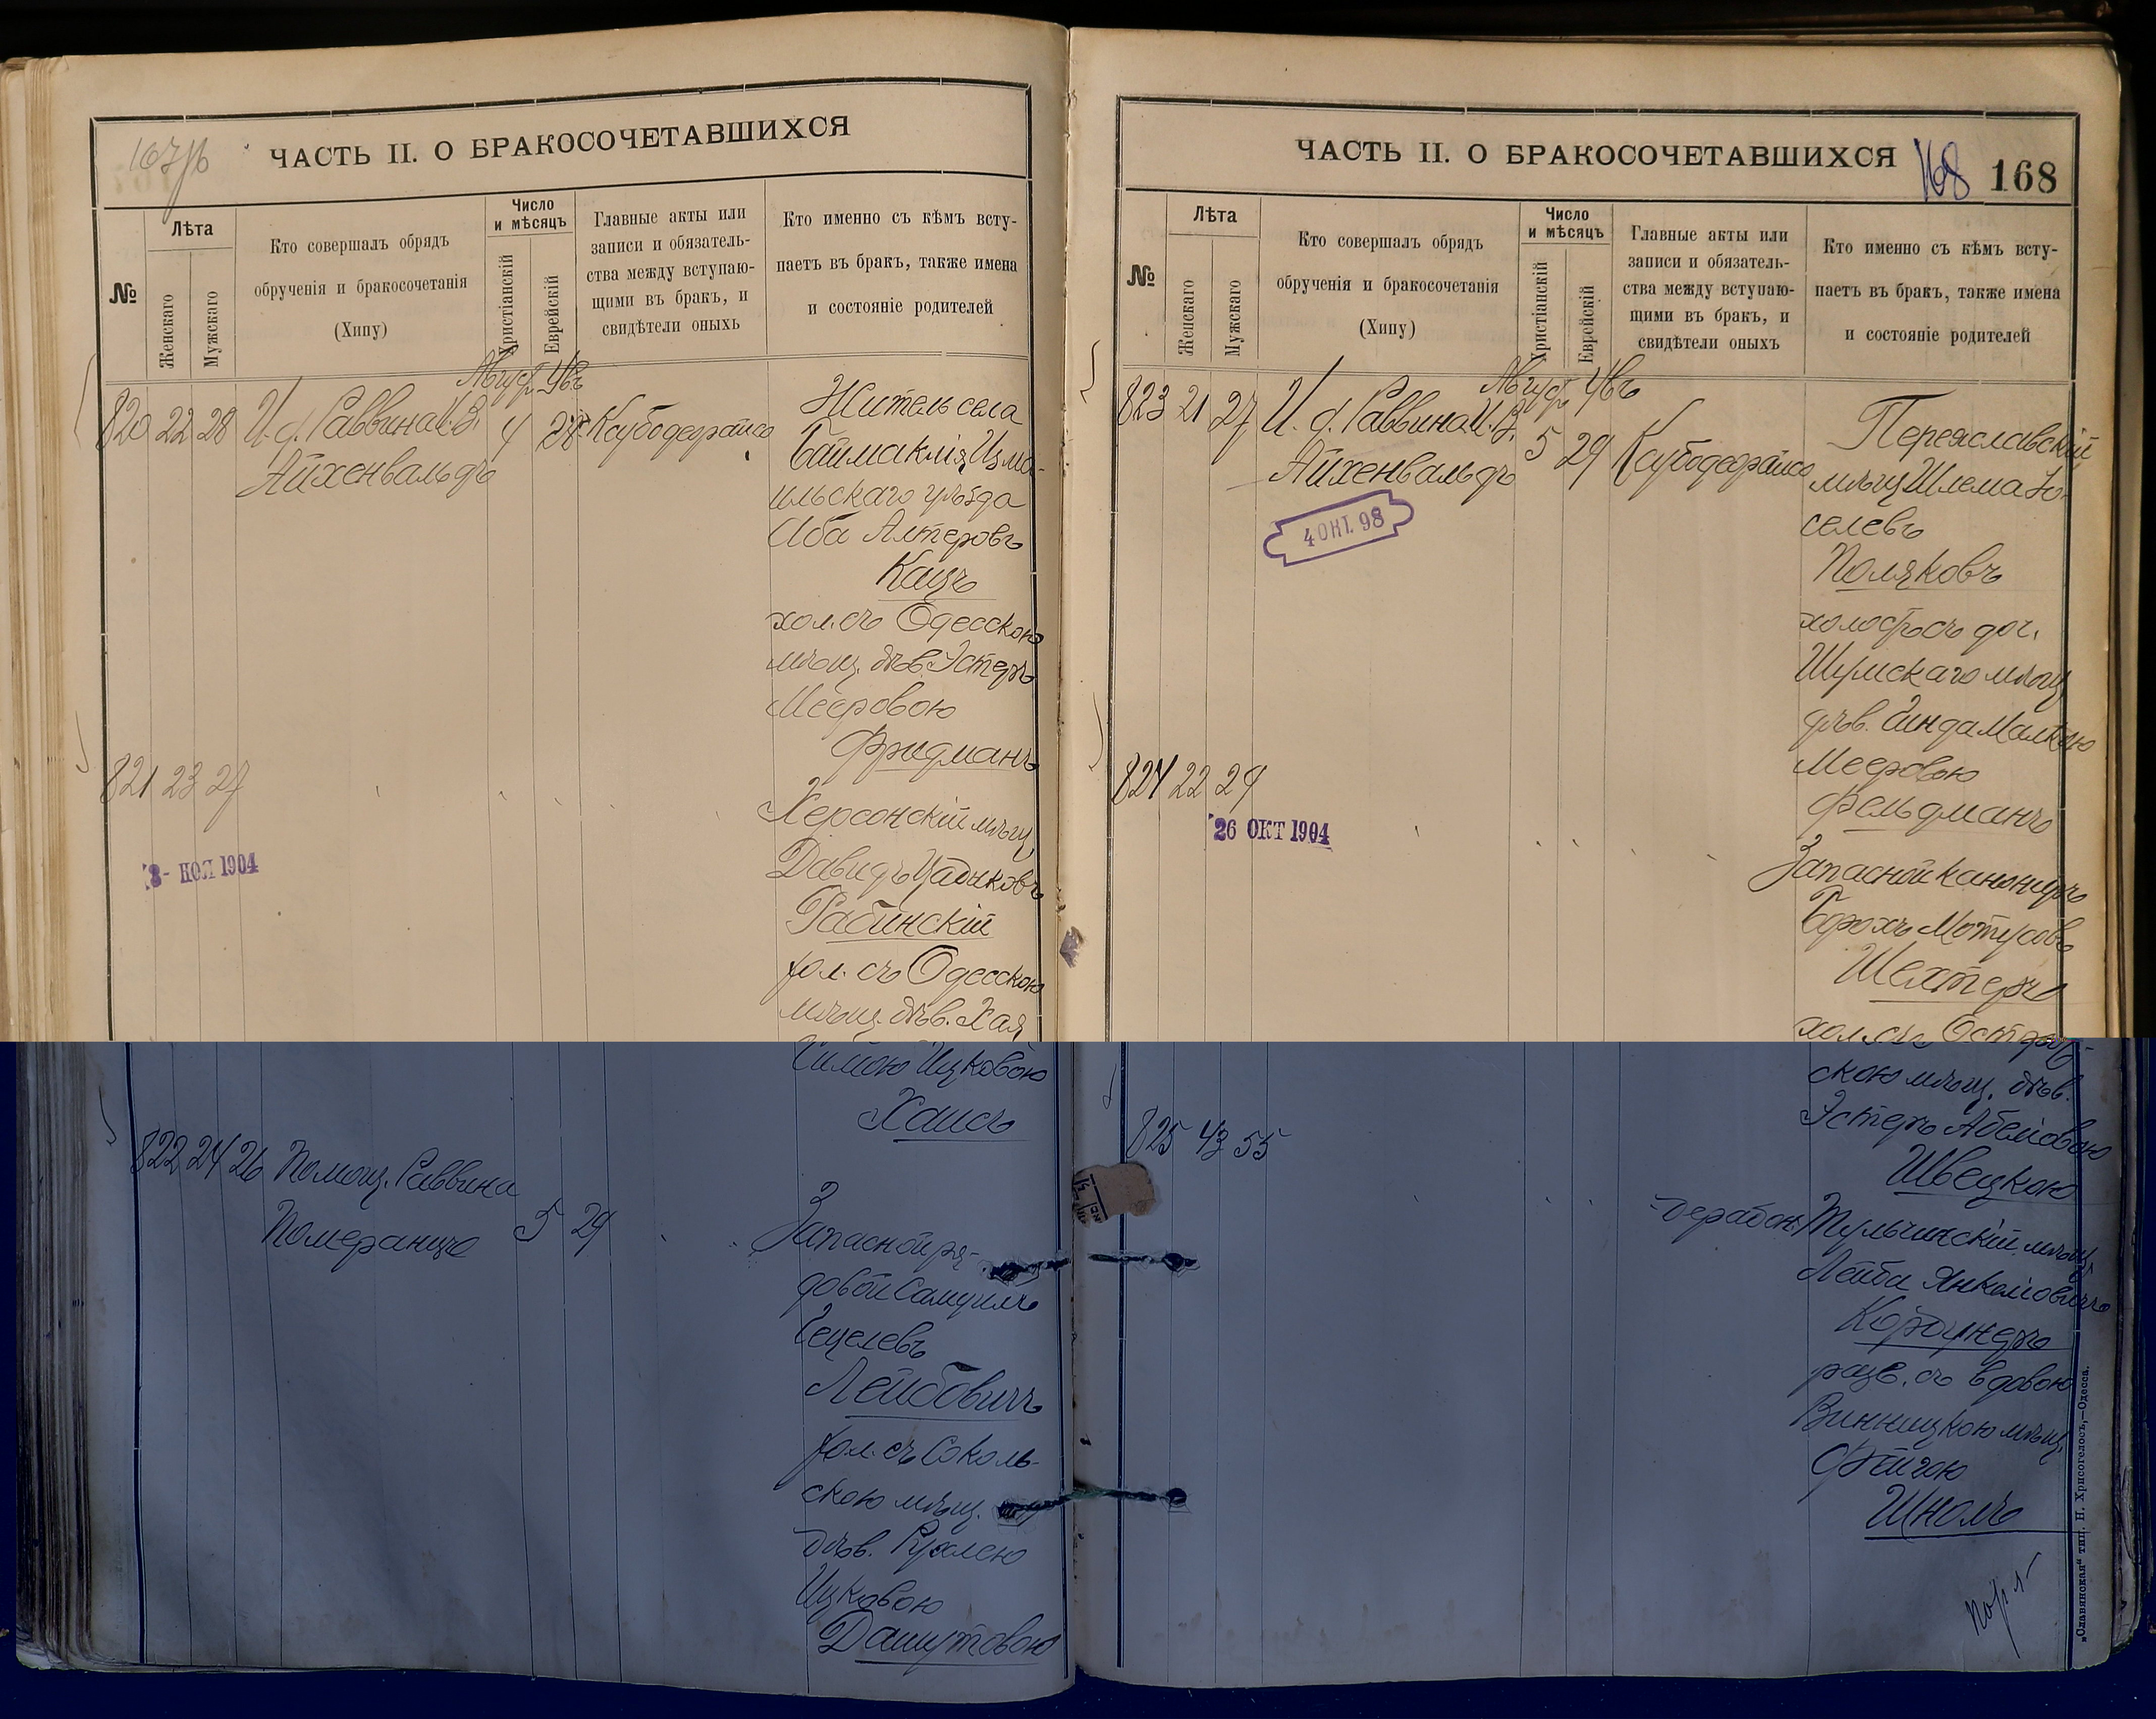 167 об
ЧАСТЬ II. О БРАКОСОЧЕТАВШИХСЯ
№
Лѣта
Женскаго
Мужскаго
Кто совершалъ обрядъ
обрученія и бракосочетанія
(Хипу)
Число
и мѣсяцъ
Христіанскій
Еврейскій
Главные акты или
записи и обязатель-
ства между вступаю-
щими въ бракъ, и
свидѣтели оныхъ
Кто именно съ кѣмъ всту-
паетъ въ бракъ, также имена
и состояніе родителей
820 22 28 И. д. Раввина И. В.
Айхенвальдъ
Август. Авъ
4 28 Ксубодерайсо
Житель села
Баймаклія, Изма-
ильскаго уѣзда
Аба Алтеровъ
Кацъ
хол. съ Одесскою
мѣщ. дѣв. Эстеръ
Мееровою
Фридманъ
821 23 27
8 - НОЯ 1904
Херсонскій мѣщ.
Давидъ Цадиковъ
Рабинскій
хол. съ Одесскою
мѣщ. дѣв. Хая
Симою Ицковою
Хаисъ
822 24 26 Помощ. Раввина
Померанцъ
5 29
Запасной ря-
довой Самуилъ
Гецелевъ
Лейбовичъ
хол. съ Соколь-
скою мѣщ.
дѣв. Рухлею
Ицковою
Дашутовою
ЧАСТЬ II. О БРАКОСОЧЕТАВШИХСЯ
168
168
№
Лѣта
Женскаго
Мужскаго
Кто совершалъ обрядъ
обрученія и бракосочетанія
(Хипу)
Число
и мѣсяцъ
Христіанскій
Еврейскій
Главные акты или
записи и обязатель-
ства между вступаю-
щими въ бракъ, и
свидѣтели оныхъ
Кто именно съ кѣмъ всту-
паетъ въ бракъ, также имена
и состояніе родителей
823 21 27 И. д. Раввина И. В.
Айхенвальдъ
Август. Авъ
5 29 Ксубодерайсо
4 ОКТ. 98
Переяславскій
мѣщ. Шлема Іо-
селевъ
Поляковъ
холост съ доч.
Шумскаго мѣщ.
дѣв. Гинда Малкою
Мееровою
Фельдманъ
824 22 29
26 ОКТ 1904
Запасной канониръ
Борохъ Мотусовъ
Шехтеръ
хол. съ Острож-
скою мѣщ. дѣв.
Эстеръ Абелiовою
Швецкою
825 43 55
-дерабон.
Тульчинскій мѣщ.
Лейба Янкеліовичъ
Кордунеръ
разв. съ вдовою
Винницкою мѣщ.
Фейгою
Шноль
„Славянская“ тип. Н. Хрисогелосъ,—Одесса.